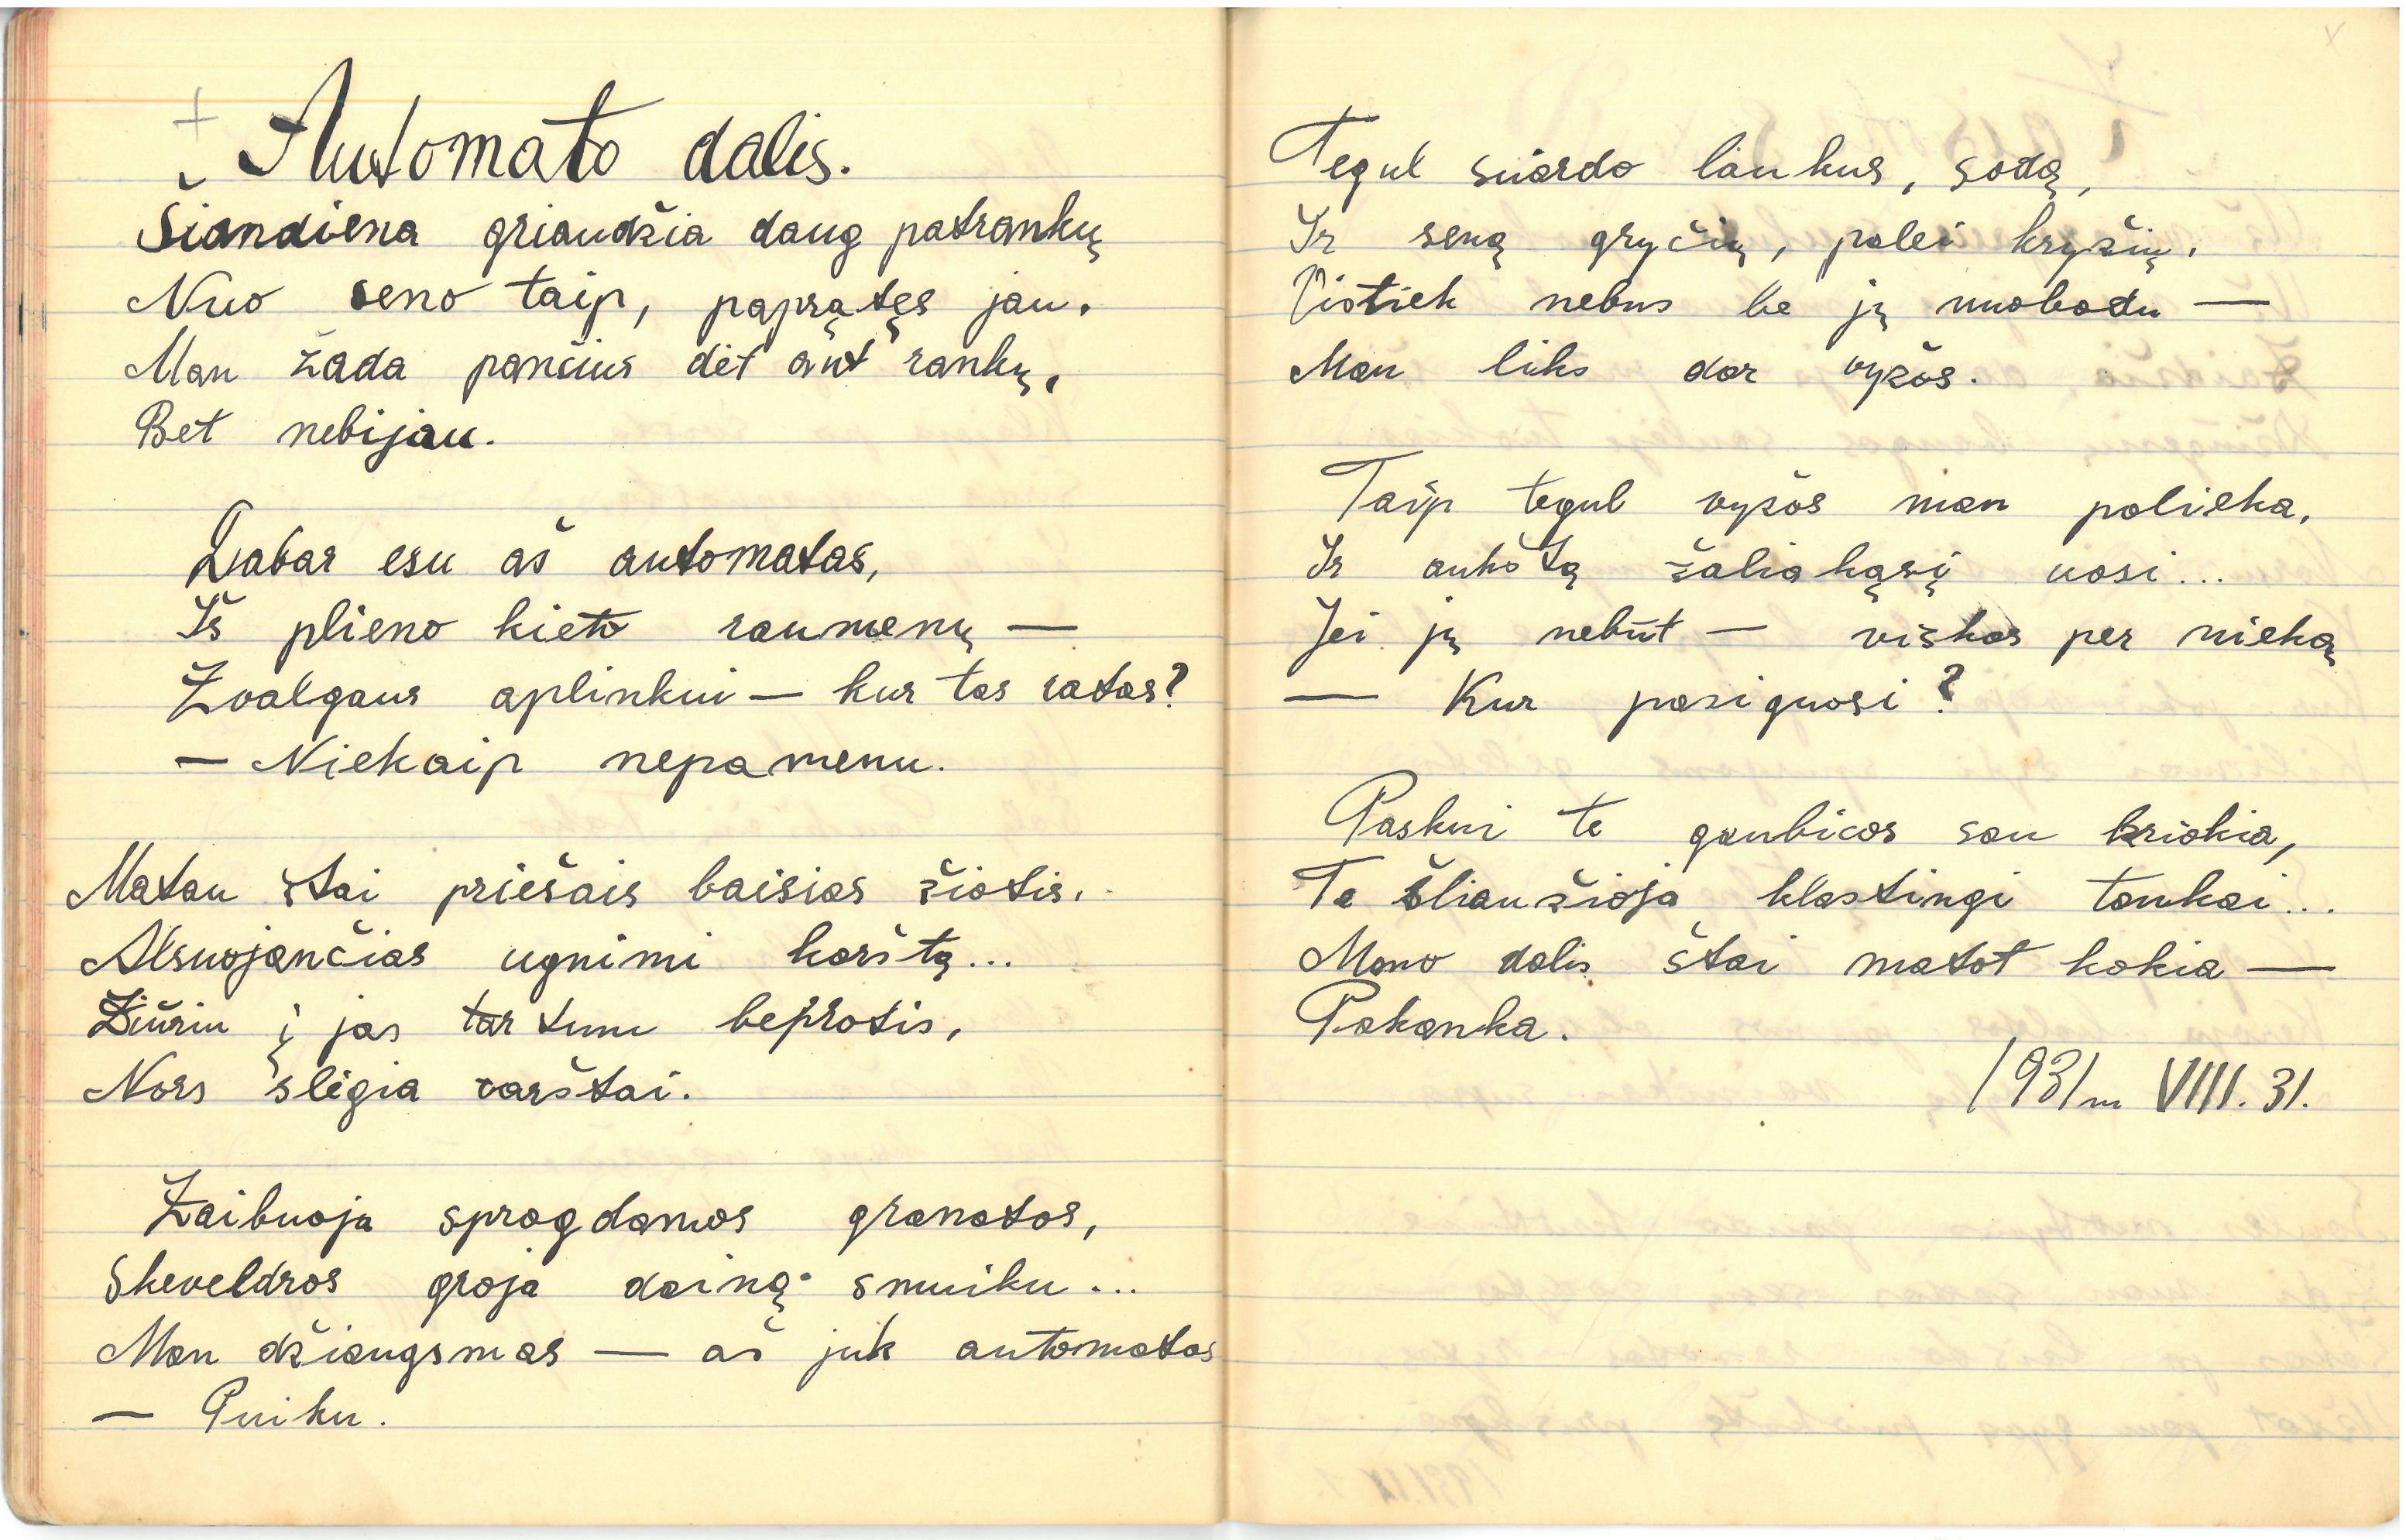 Automato dalis.
Šiandiena griaudžia daug patrankų
Nuo seno taip, papratęs jau.
Man žada pančius dėt ant rankų,
Bet nebijau.
Dabar esu aš automatas,
Iš plieno kieto raumenų —
Žvalgaus aplinkui — kur tas ratas?
— Niekaip nepamenu.
Matau štai priešais baisias žiotis,
Alsuojančias ugnimi karštą...
Žiūriu į jas tartum beprotis,
Nors slėgia varštai.
Žaibuoja sprogdamos granatos,
Skeveldros groja dainą smuiku...
Man džiaugsmas — aš juk automatas
— Puiku.
Tegul suardo laukus, sodą,
Ir seną gryčią, palei kryžių.
Vistiek nebus be jų nuobodu —
Man liks dar vyžos.
Taip tegul vyžos man palieka,
Ir aukštą žaliakąsį uosi...
Jei jų nebūt — viskas per nieką
— Kur pasiguosi?
Paskui te gaubicos sau kriokia,
Te šliaužioja klastingi tankai...
Mano dalis štai matot kokia —
Pakanka.
1931 m VIII. 31.